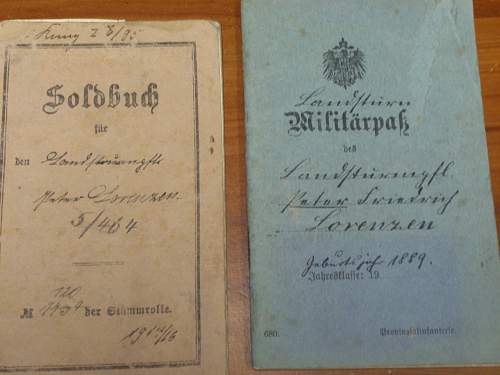 Soldbuch
für
den Landsturmpfl.
Peter Lorenzen.
5/464
№ der Stammrolle.
Landsturm
Militärpaß
des
Landsturmpfl.
Peter Friedrich
Lorenzen
Geburtsjahr 1889.
Jahresklasse: 19
680. Provinzialinfanterie.